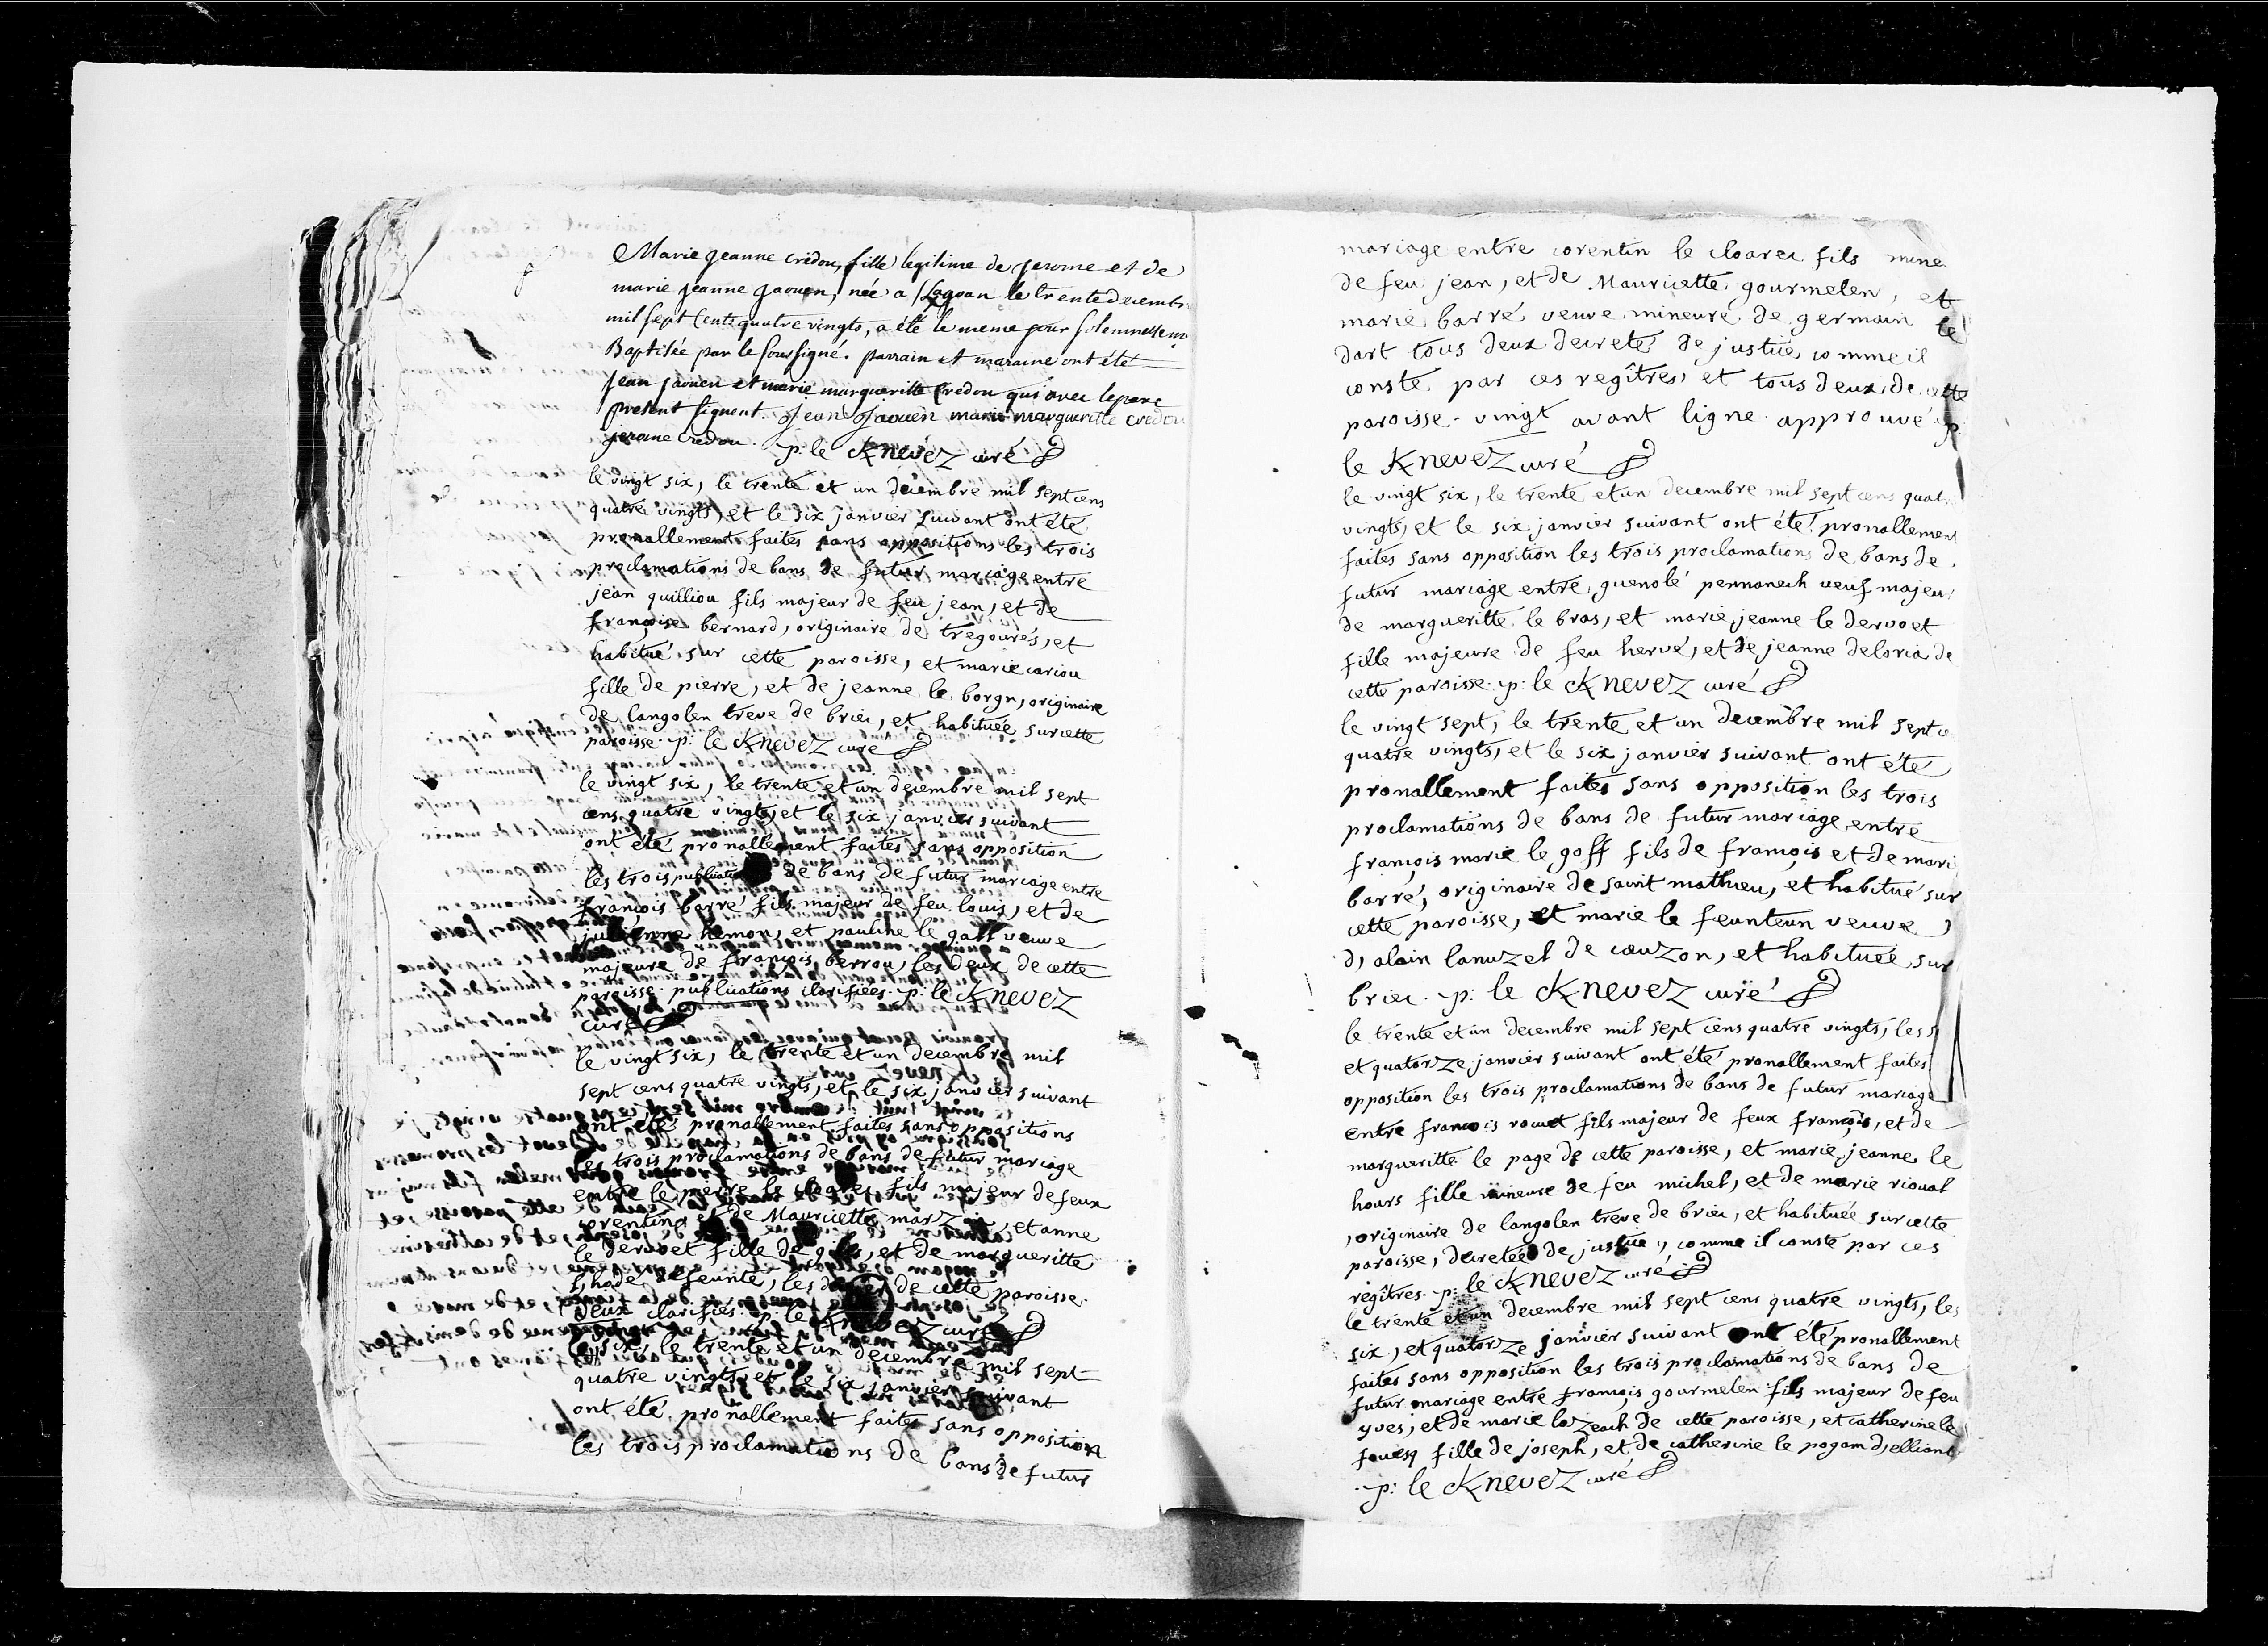 Marie Jeanne credou, fille légitime de jerome et de
marie jeanne jaouen, née a le trente decembr
mil sept cent quatre vingts, a été le meme jour solemnellem
Baptisée par le soussigné. parrain et maraine ont été
jean jaouen et marie margueritte Credou qui avec le pere
présent signent. Jean Jaouen marie margueritte credou
jerome Credou. p: le Knevez curé
le vingt six, le trente et un decembre mil sept cens
quatre vingts, et le six janvier suivant ont été
pronallement faites sans oppositions les trois
proclamations de bans de futur mariage entre
jean quilliou fils majeur de feu jean, et de
françoise bernard, originaire de trégourés, et
habitué sur cette paroisse, et marie cariou
fille de pierre, et de jeanne le borgn, originaire
de langolen treve de briec, et habituée sur cette
paroisse. p: le Knevez curé
le vingt six, le trente et un decembre mil sept
cens quatre vingts, et le six janvier suivant
ont été pronallement faites sans opposition
les trois de bans de futur mariage entre
françois barré fils majeur de feu louis, et de
julienne hemon, et pauline le gall veuve
majeure de françois berrou, les deux de cette
paroisse. publications clarifiées. p: le Knevez
curé
le vingt six, le trente et un decembre mil
sept cens quatre vingts, et le six janvier suivant
ont été pronallement faites sans oppositions
les trois proclamations de bans de futur mariage
entre le pierre le cloarec fils majeur de feux
corentin, et de Mauricette marzin, et anne
le dervoet fille de et de margueritte
defeunte, les de cette paroisse.
deux clarifiés. p: le Knevez curé
le six, le trente et un decembre mil sept
quatre vingts, et le six janvier suivant
ont été pronallement faites sans opposition
les trois proclamations de bans de futur
mariage entre corentin le cloarec fils mine
de feu jean, et de Mauricette gourmelen, et
marie barré veuve mineure de germain le
dart tous deux decretés de justice, comme il
conste par ces regîtres, et tous deux de cette
paroisse. vingt avant ligne approuvé p
le Knevez curé
le vingt six, le trente et un decembre mil sept cens quat
vingts, et le six janvier suivant ont été pronallement
faites sans opposition les trois proclamations de bans de
futur mariage entre guenolé pennanech veuf majeu
de margueritte le bras, et marie jeanne le dervoet
fille majeure de feu hervé, et de jeanne deloria de
cette paroisse. p: le Knevez curé
le vingt sept, le trente et un decembre mil sept c
quatre vingts, et le six janvier suivant ont été
pronallement faites sans opposition les trois
proclamations de bans de futur mariage entre
françois marie le goff fils de françois et de mari
barré, originaire de saint mathieu, et habitué sur
cette paroisse, et marie le feunteun veuve
d, alain lanuzel de cauzon, et habituée sur
briec. p: le Knevez curé
le trente et un decembre mil sept cens quatre vingts, les s
et quatorze janvier suivant ont été pronallement faites
opposition les trois proclamations de bans de futur mariage
entre francois rouet fils majeur de feux françois, et de
margueritte le page de cette paroisse, et marie jeanne le
hours fille mineure de feu michel, et de marie rioual
, originaire de langolen treve de briec, et habituée sur cette
paroisse, decretée de justice, comme il conste par ces
regîtres. p: le Knevez curé
le trente et un decembre mil sept cens quatre vingts, les
six, et quatorze janvier suivant ont été pronallement
faites sans opposition les trois proclamations de bans de
futur mariage entre françois gourmelen fils majeur de feu
yves, et de marie lozeach de cette paroisse, et catherine le
fouesq fille de joseph, et de catherine le pogam d, elliant
. p: le Knevez curé